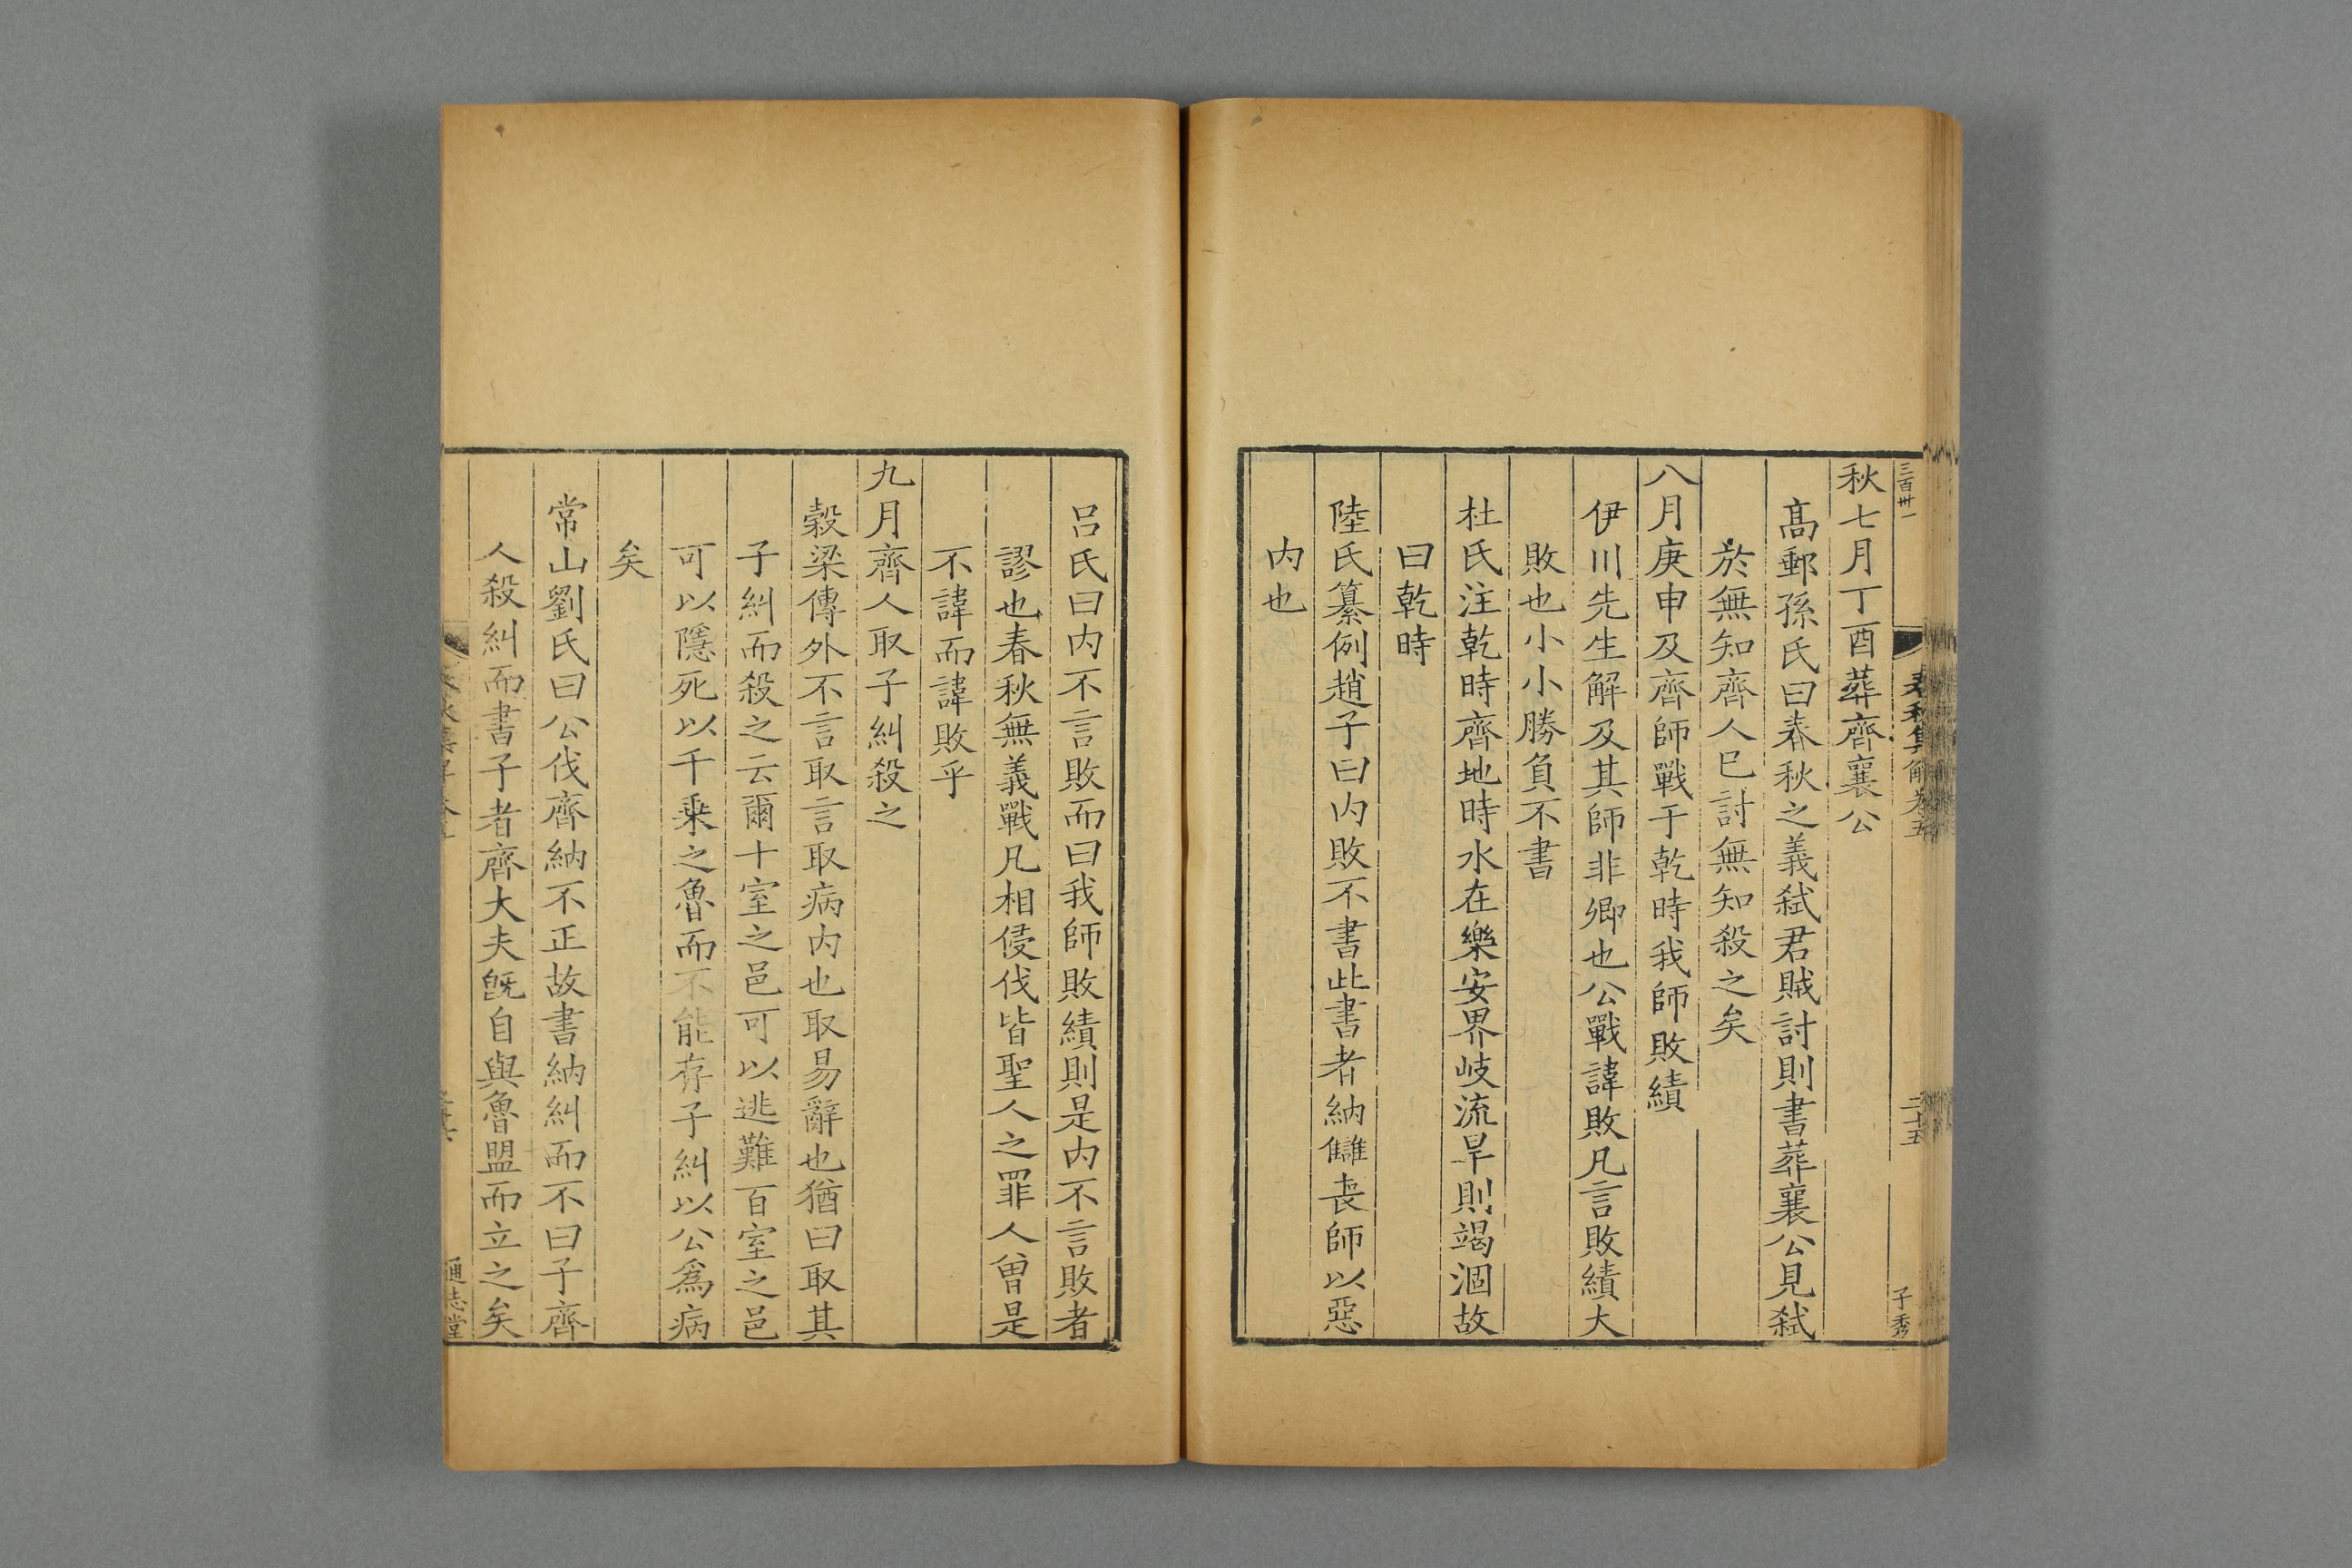 三百卅一
春秋集解卷五
二十五
子秀
秋七月丁酉葬齊襄公
髙郵孫氏曰春秋之義弑君賊討則書葬襄公見弑
於無知齊人巳討無知殺之矣
八月庚申及齊師戰于乾時我師敗績
伊川先生解及其師非卿也公戰諱敗凡言敗績大
敗也小小勝負不書
杜氏注乾時齊地時水在樂安界岐流旱則竭涸故
曰乾時
陸氏纂例趙子曰内敗不書此書者納讎丧師以惡
内也
吕氏曰内不言敗而曰我師敗績則是内不言敗者
謬也春秋無義戰凡相侵伐皆聖人之罪人曽是
不諱而諱敗乎
九月齊人取子糾殺之
榖梁傳外不言取言取病内也取易辭也猶曰取其
子糾而殺之云爾十室之邑可以逃難百室之邑
可以隱死以千乗之魯而不能存子糾以公爲病
矣
常山劉氏曰公伐齊納不正故書納糾而不曰子齊
人殺糾而書子者齊大夫旣自與魯盟而立之矣
通志堂